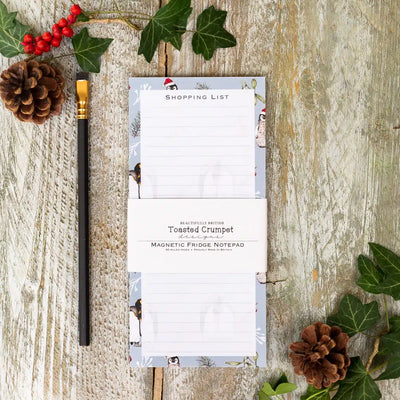 SHOPPING LIST
BEAUTIFULLY BRITISH
Toasted Crumpet
designs
MAGNETIC FRIDGE NOTEPAD
60 LINED PAGES • PROUDLY MADE IN BRITAIN